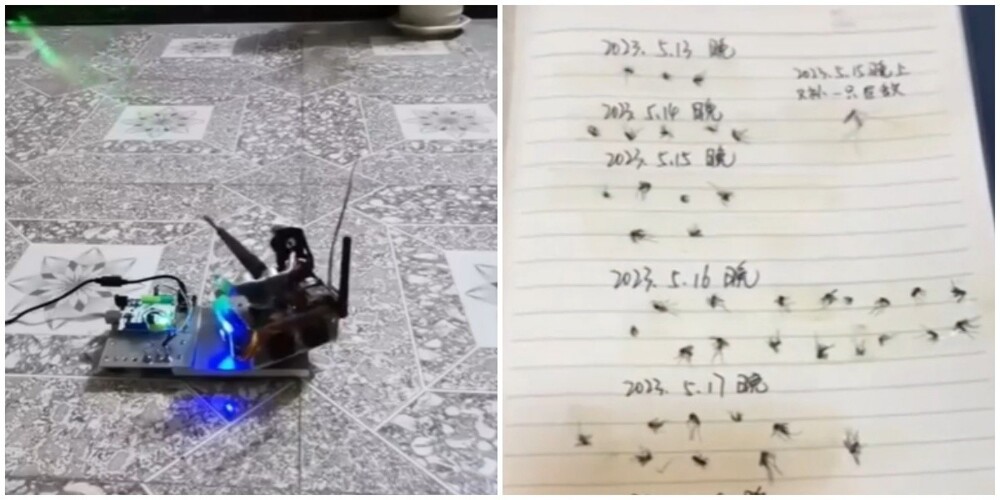 2023. 5.13 晚
2023.5.15晚上
又补一只巨蚊
2023. 5.14 晚
2023. 5.15 晚
2023. 5.16 晚
2023. 5.17 晚